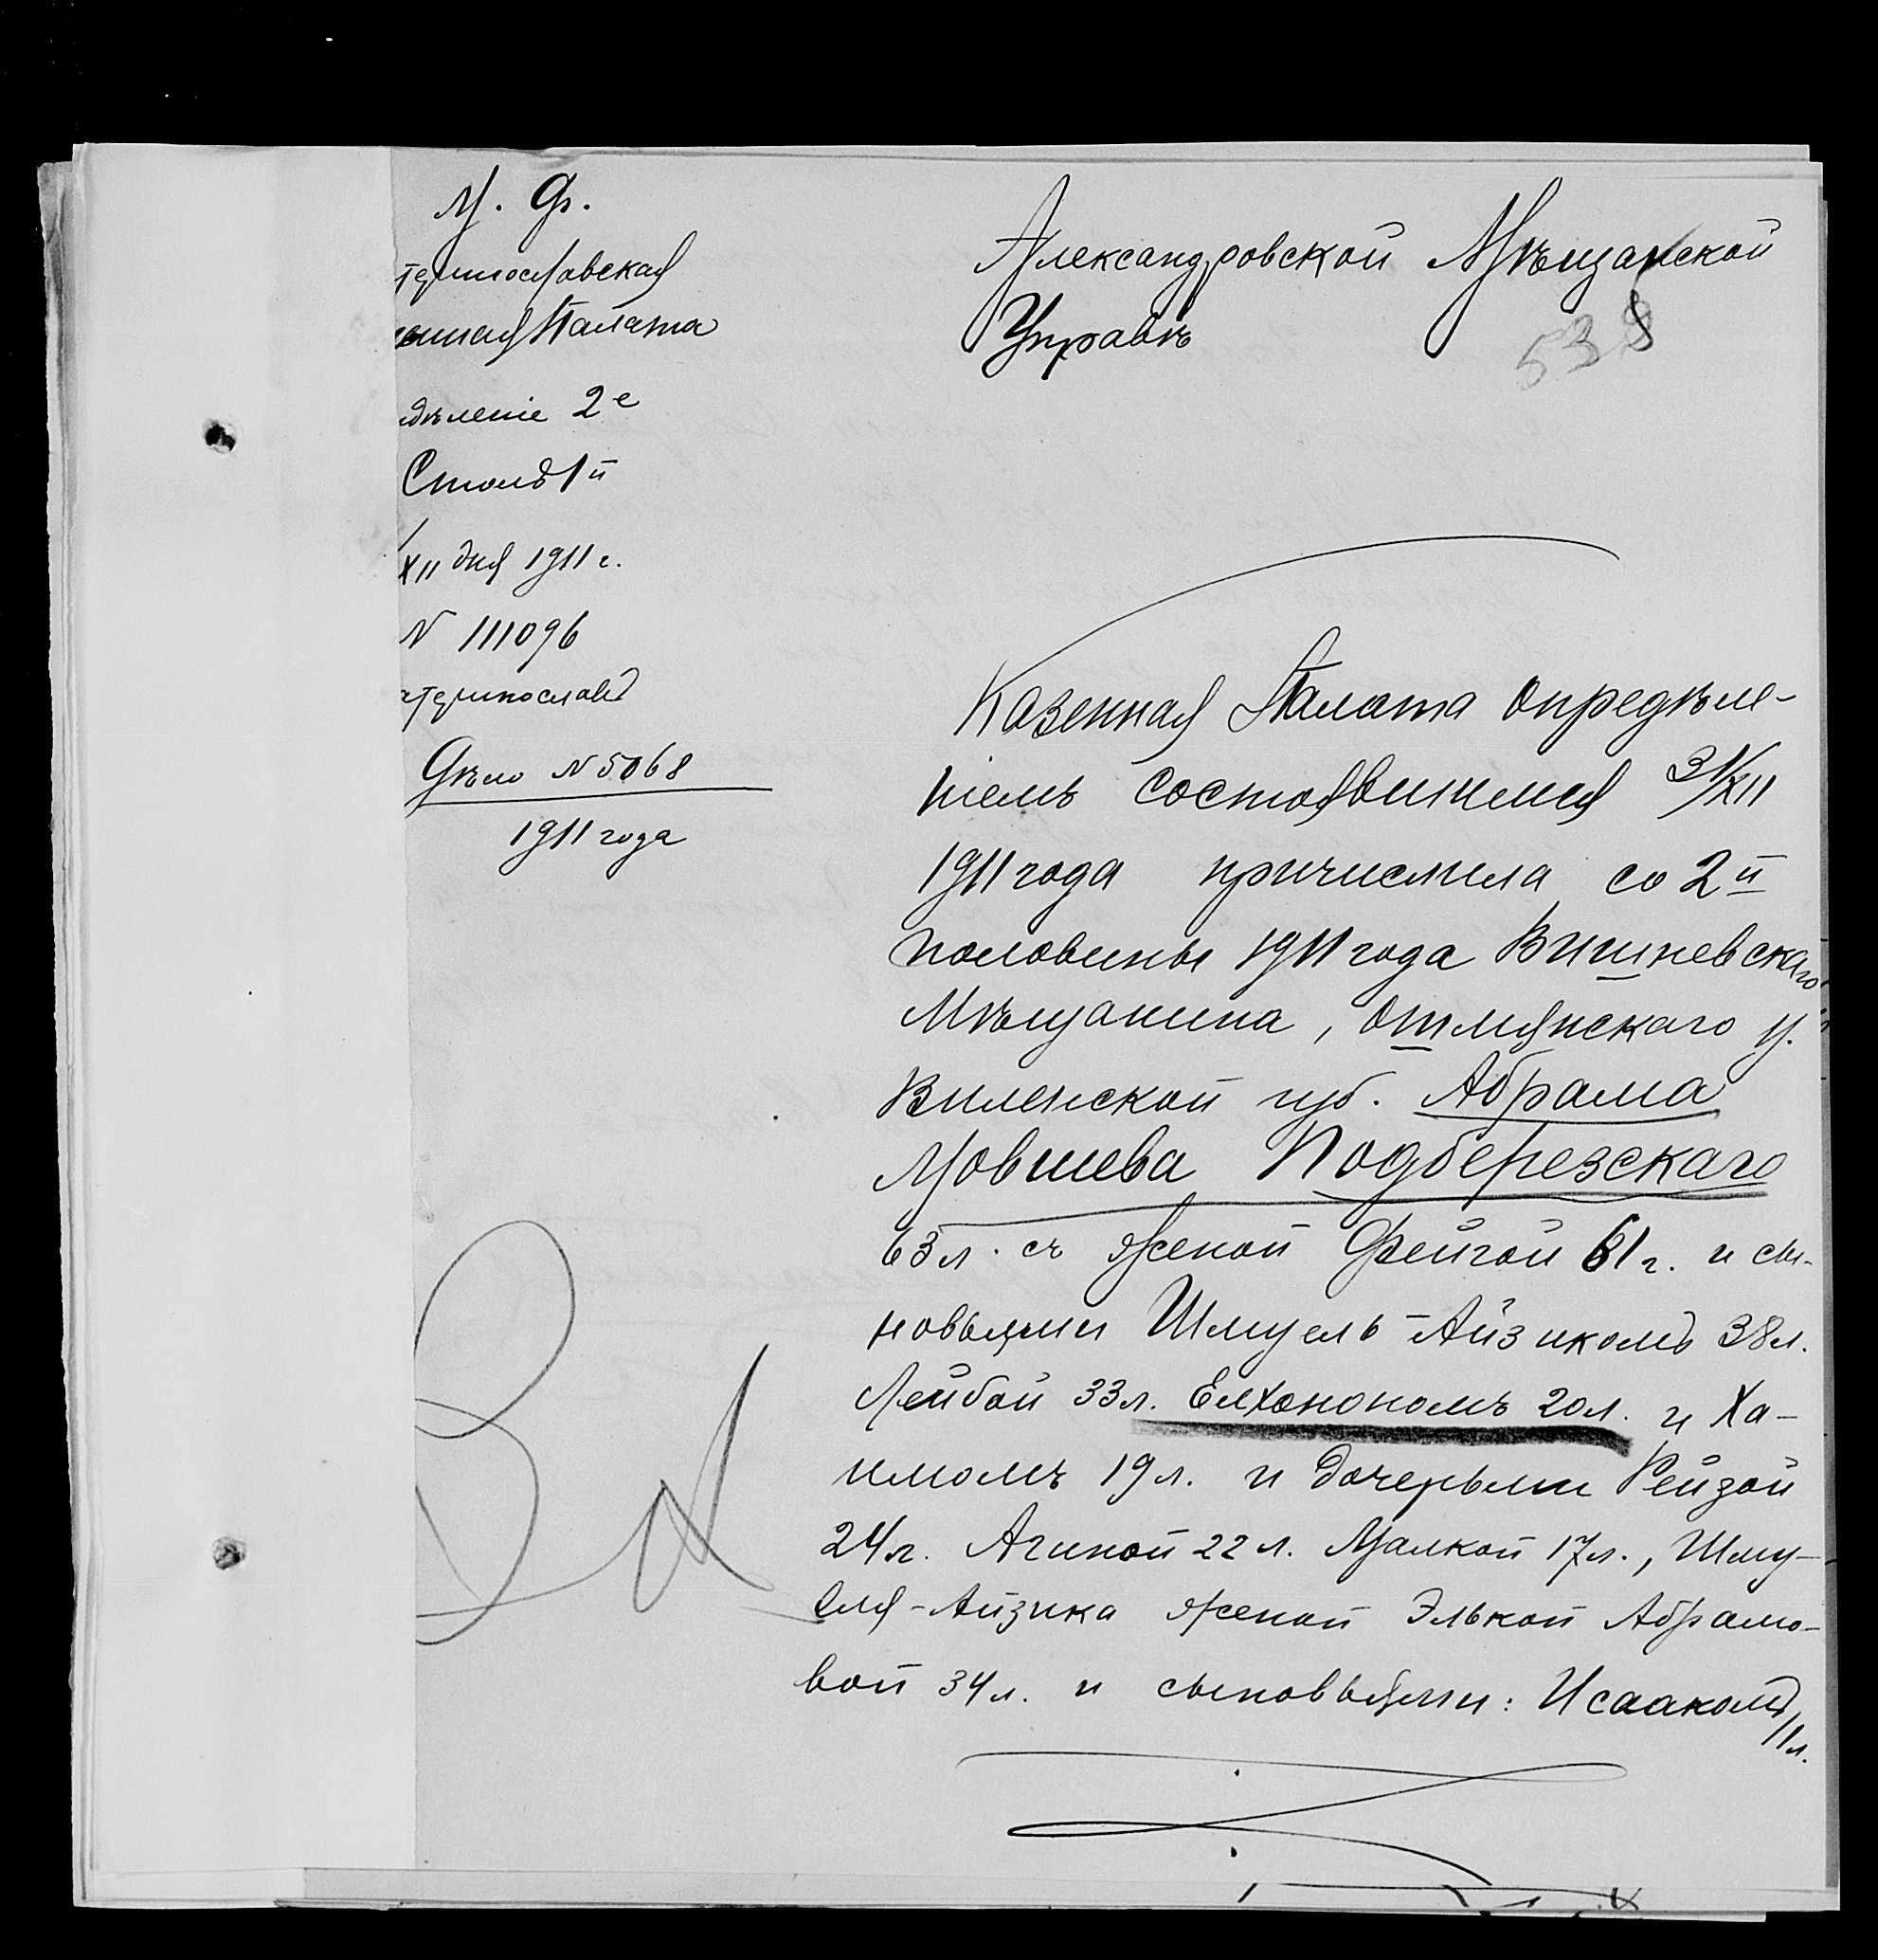 М. Ф.
теринославская
енная Палата
дѣленіе 2е
Столъ 1й
XII дня 1911 г.
N 111096
атеринославъ
Дѣло N 5068
1911 года
Александровской Мѣщанской
Управѣ
538
Казенная Палата опредѣле-
ніемъ состоявшимся 31/XII
1911 года причислила со 2й
половины 1911 года Вишневскаго
Мѣщанина, Ошмянскаго у.
Виленской губ. Абрама
Мовшева Подберезскаго
63 л. съ женой Фейгой 61 г. и сы-
новьями Шмуель-Айзикомъ 38 л.
Лейбой 33 л. Елхонономъ 20 л. и Ха-
имомъ 19 л. и дочерьми Рейзой
24 г. Агиной 22 л. Малкой 17 л., Шму-
еля-Айзика женой Элькой Абрамо-
вой 34 л. и сыновьями: Исаакомъ
11 л.